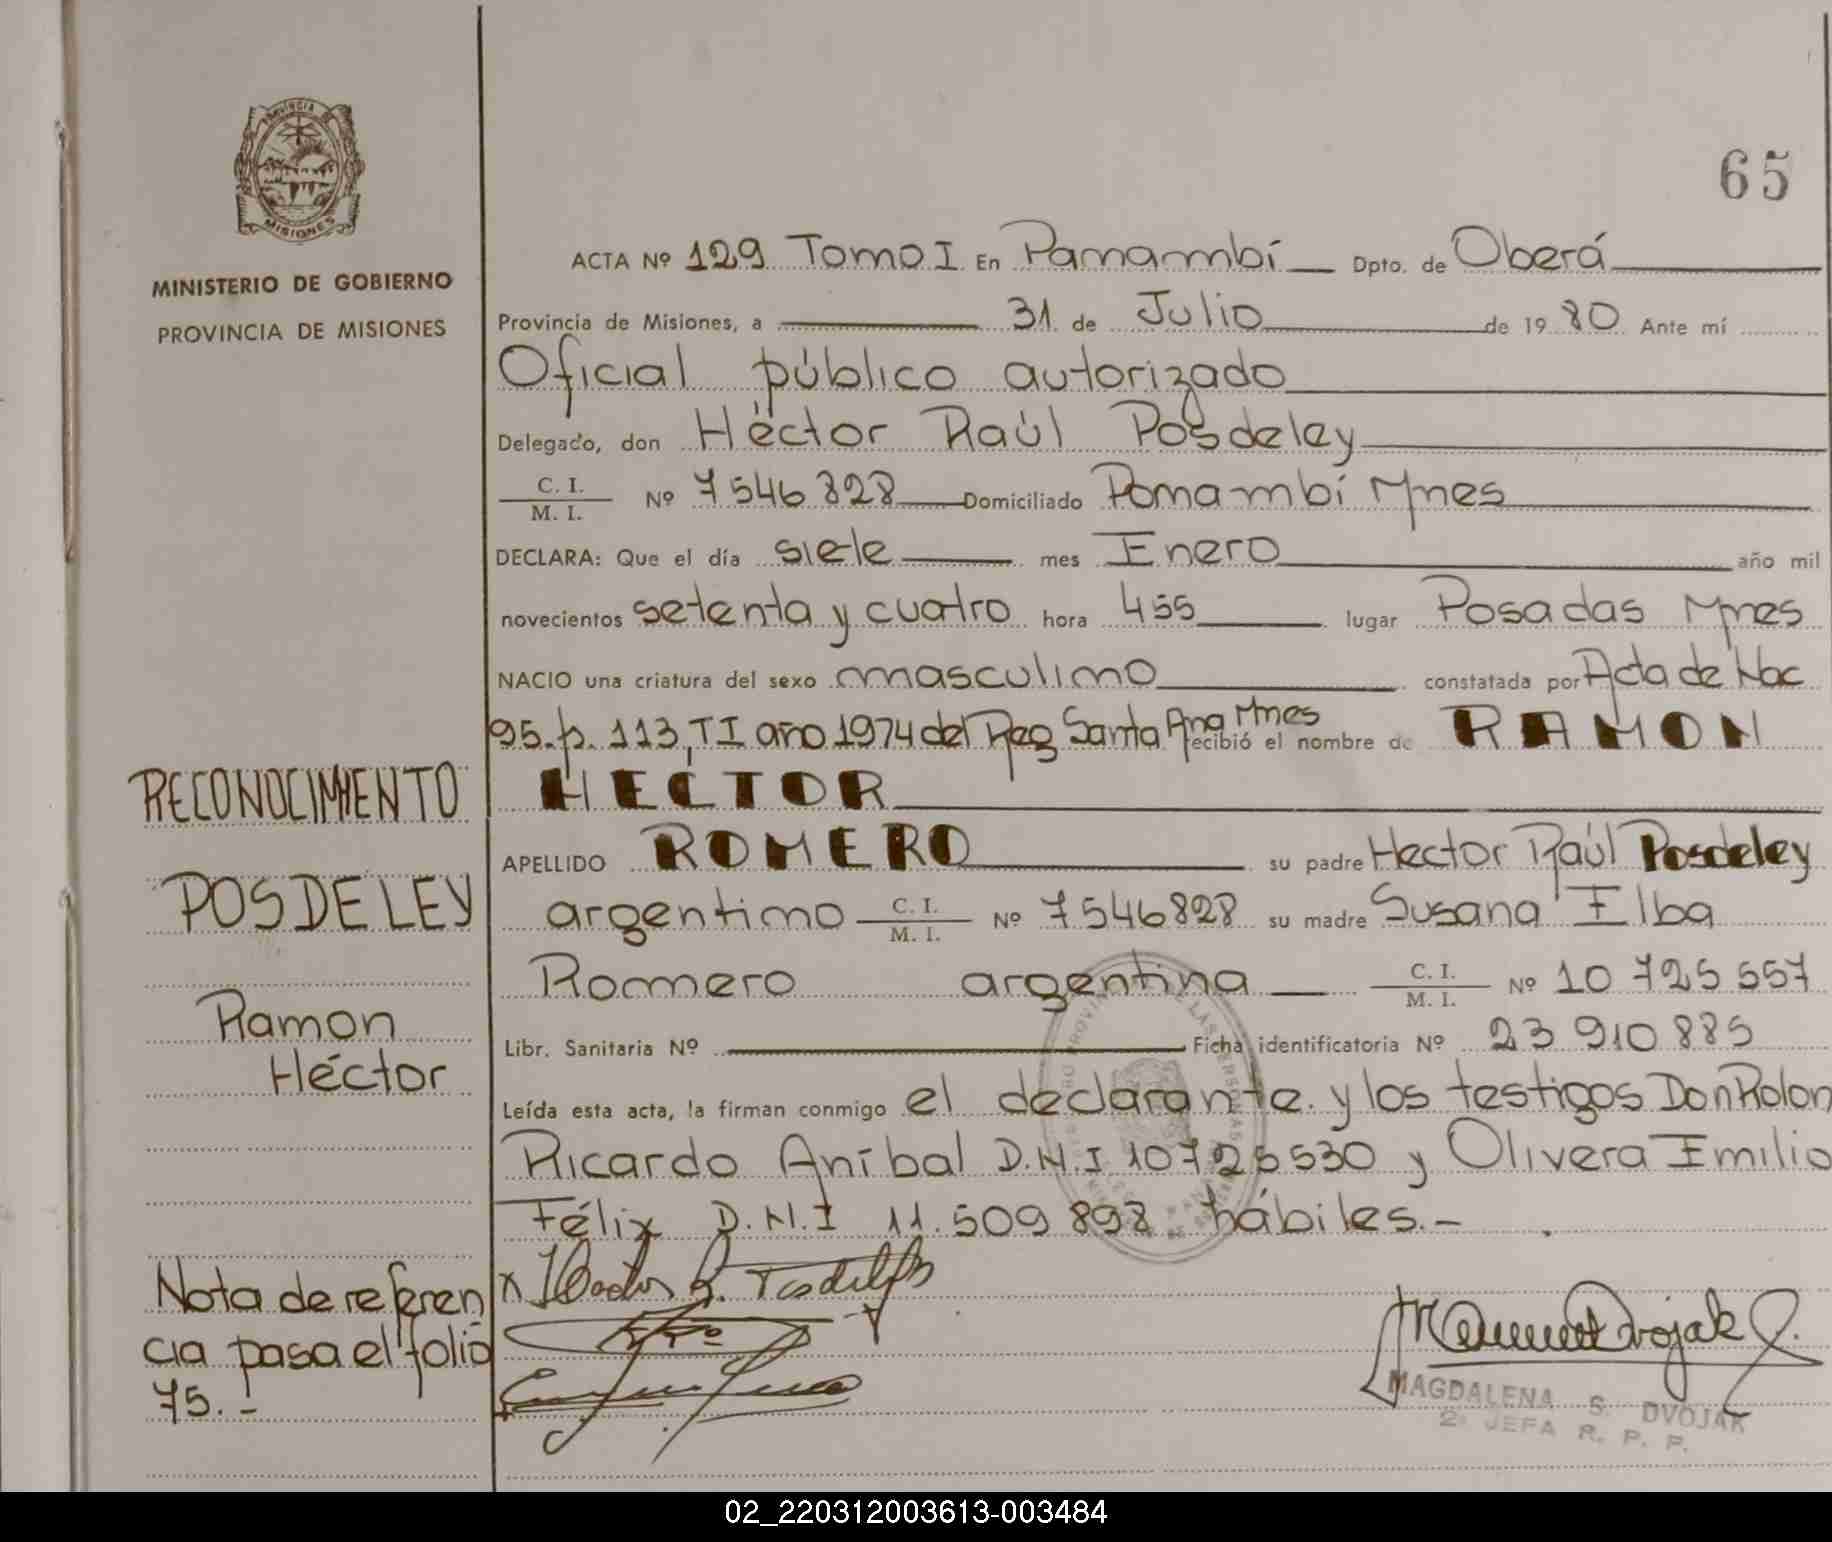 PROVINCIA
MISIONES
MINISTERIO DE GOBIERNO
PROVINCIA DE MISIONES
65
ACTA Nº 129 Tomo I En Panambí Dpto. de Oberá
Provincia de Misiones, a 31 de Julio de 19 80 Ante mí
Oficial público autorizado
Delegado, don Héctor Raúl Posdeley
C. I.
M. I. Nº 7546828 Domiciliado Panambí Mnes
DECLARA: Que el día siete mes Enero año mil
novecientos setenta y cuatro hora 455 lugar Posadas Mnes
NACIO una criatura del sexo masculino constatada por Acta de Nac
95. p. 113, TI año 1974 del Reg Santa Ana Mnes recibió el nombre de RAMON
HECTOR
APELLIDO ROMERO su padre Hector Raúl Posdeley
argentino C. I. M. I. Nº 7546828 su madre Susana Elba
Romero argentina C. I. M. I. Nº 10 725 557
Libr. Sanitaria Nº Ficha identificatoria Nº 23 910 885
Leída esta acta, la firman conmigo el declarante y los testigos Don Rolon
Ricardo Aníbal D.N.I 10725530 y Olivera Emilio
Félix D.N.I 11.509 898 hábiles.-
RECONOCIMIENTO
POSDELEY
Ramon
Héctor
Nota de referen
cia pasa el folio
75.-
Dvojak
MAGDALENA S. DVOJAK
2ª JEFA R. P. P.
02_220312003613-003484